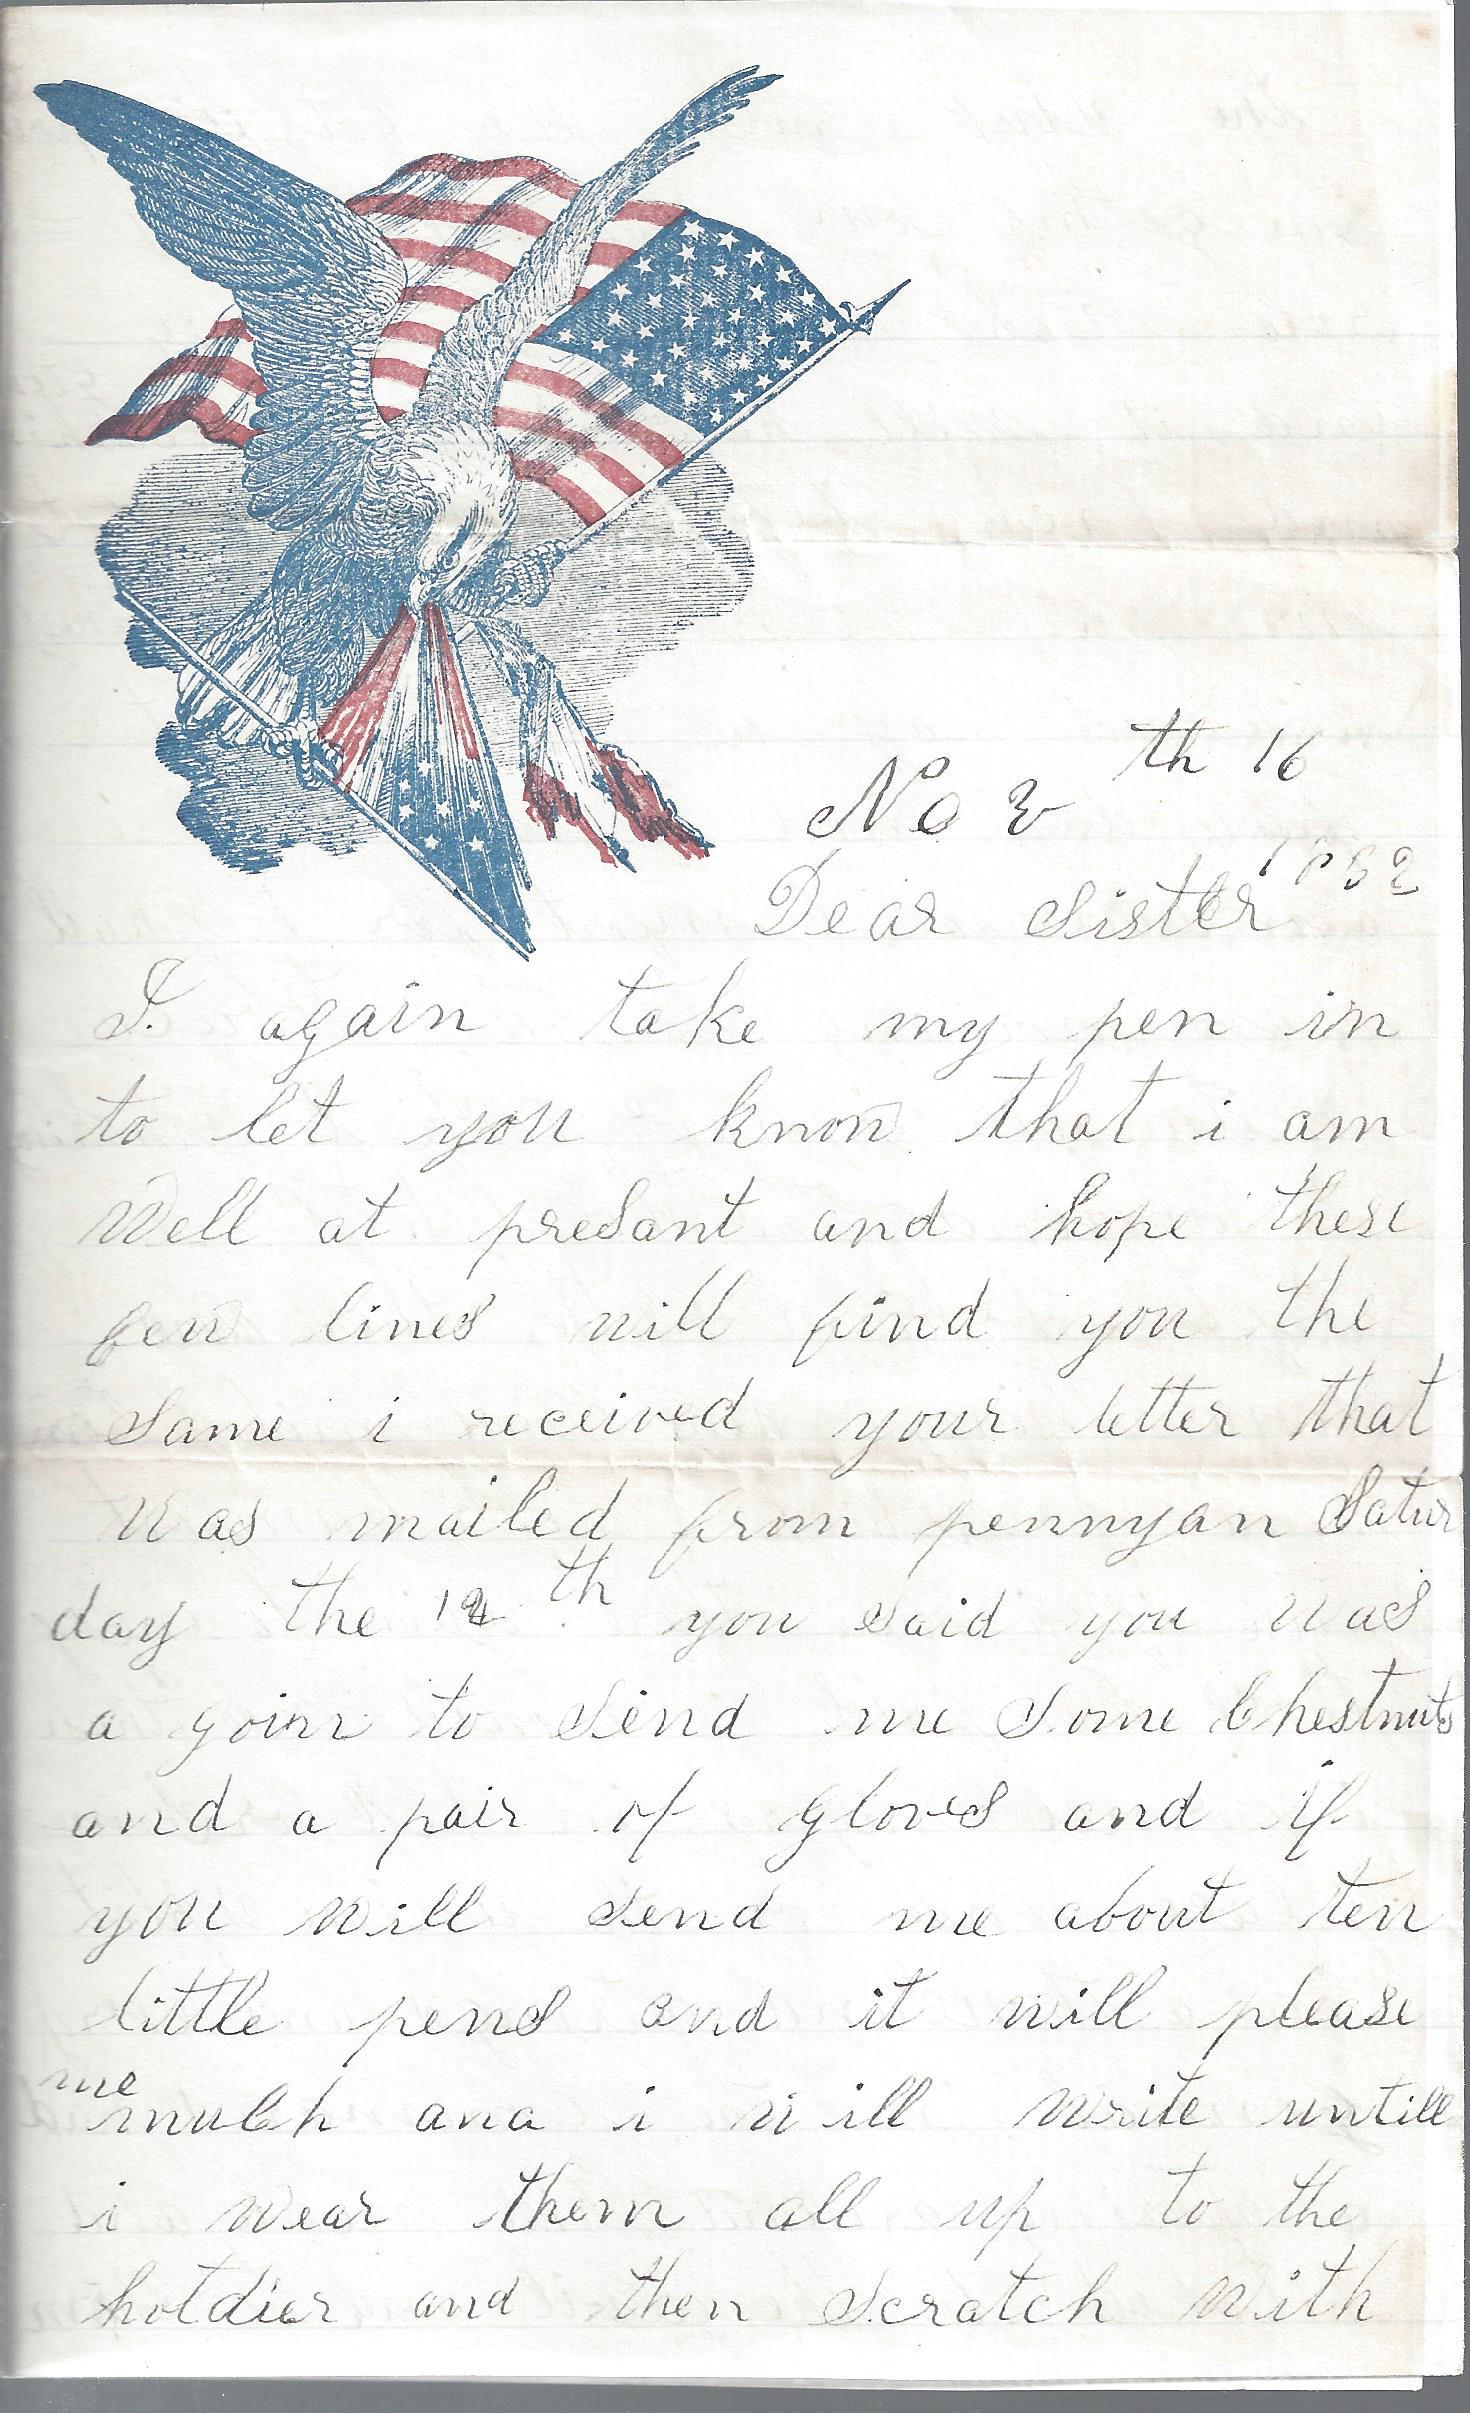 Nov th 16
1862
Dear Sister
I again take my pen in
to let you know that i am
Well at presant and hope these
few lines will find you the
Same i received your letter that
was mailed from pennyan Satur
day the th you said you was
a goin to Send me Some Chestnuts
and a pair of gloves and if
you will send me about ten
little pens and it will please
me
much and i will write untill
i wear them all up to the
hotdier and then Scratch with